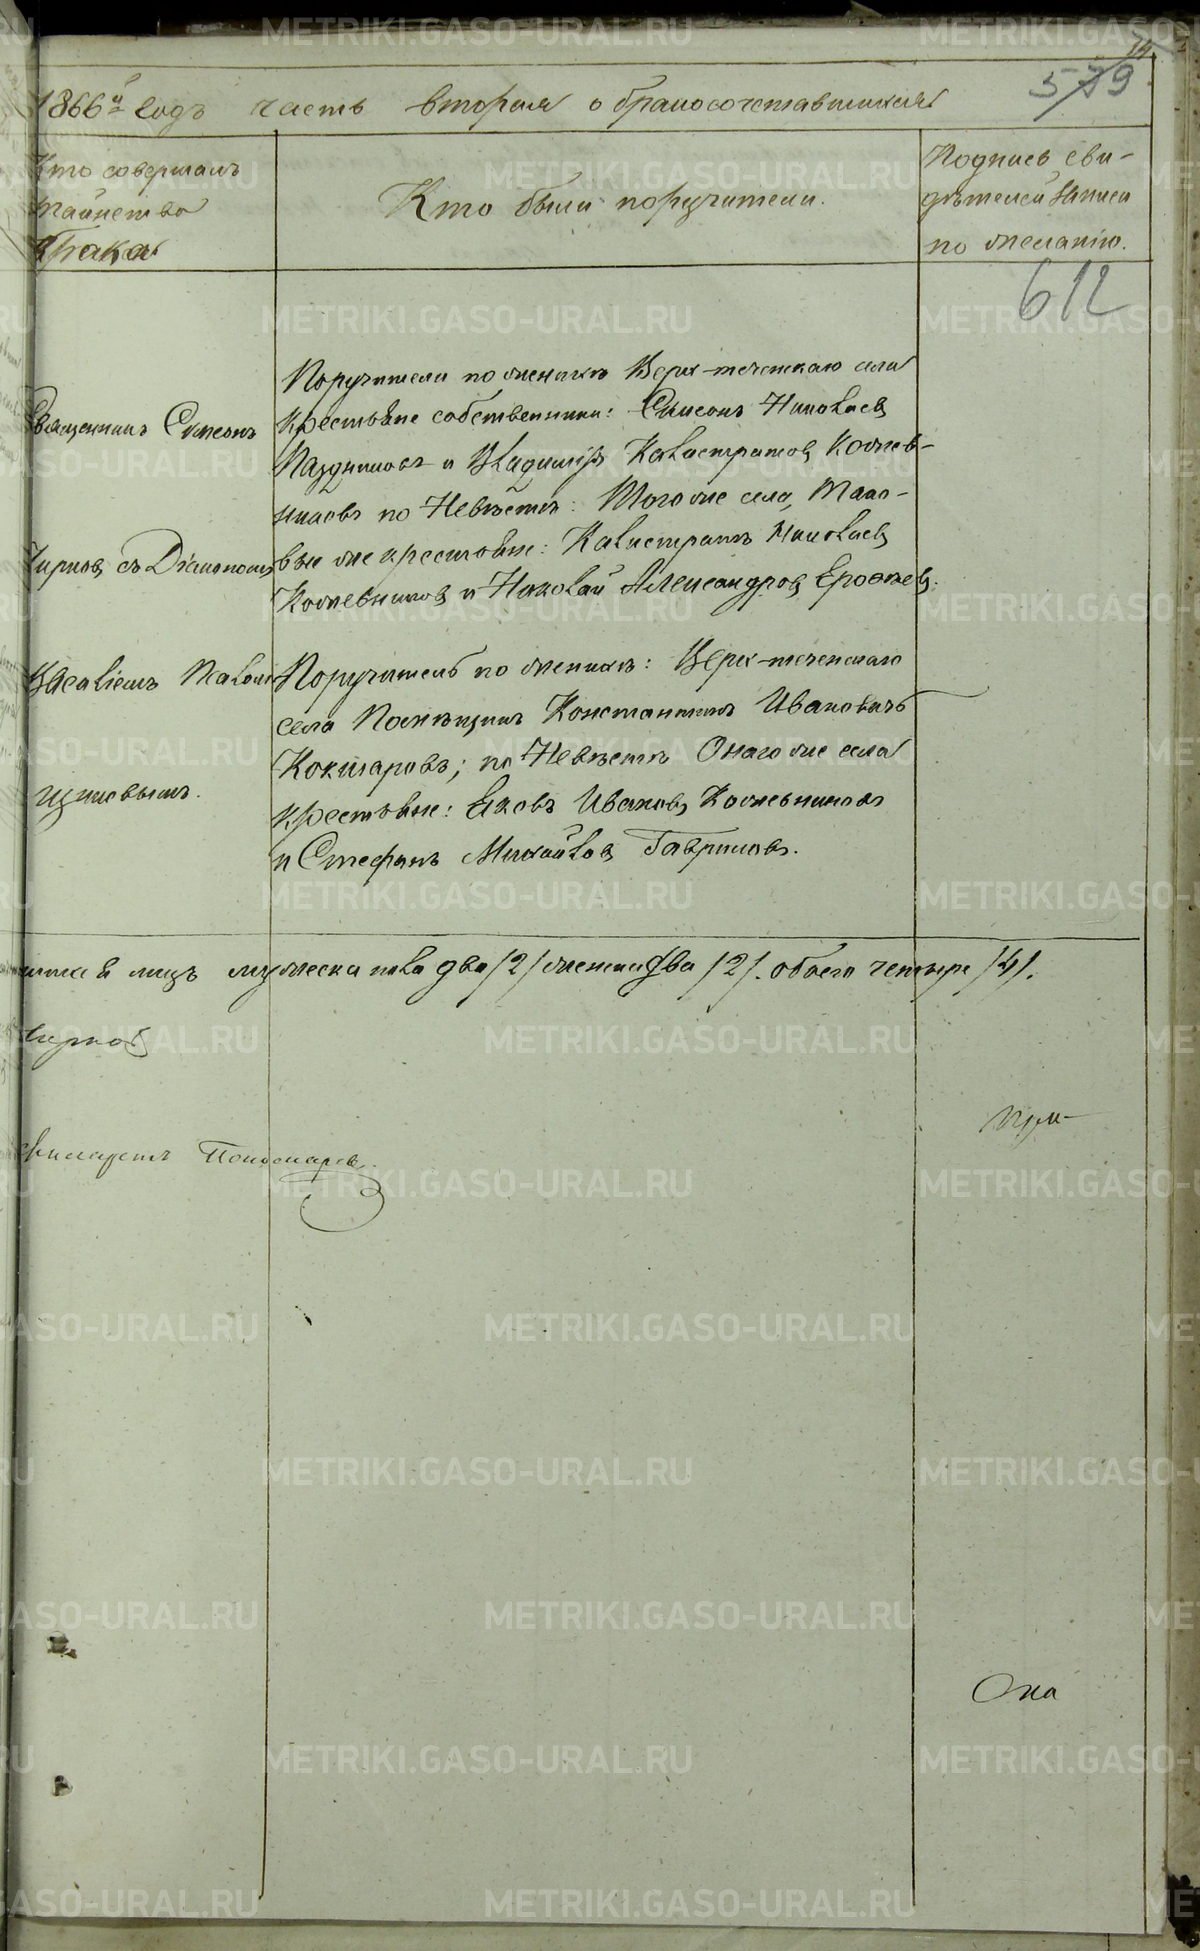 14
579
1866й годъ часть вторая о бракосочетавшихся
Кто совершалъ
таинство
брака
Кто были поручители.
Подпись сви-
дѣтелей записи
по желанію.
612
Священникъ Симеонъ
съ Діакономъ
Василіемъ
Поручители по женихѣ Верх-теченскаго села
крестьяне собственники: Симеонъ Николаевъ
Паздниковъ и Владиміръ Калистратовъ Кожев-
никовъ по Невѣстѣ: Того же села, Тако-
вые же крестьяне: Калистратъ Николаевъ
Кожевниковъ и Николай Александровъ Ерофѣевъ.
Поручитель по женихѣ: Верх-теченскаго
села Константинъ Ивановичъ
Кокшаровъ; по Невѣстѣ Онаго же села
крестьяне: Яковъ Ивановъ Кожевниковъ
и Стефанъ Михайловъ Гавриловъ.
лицъ мужеска пола два /2/ женска два /2/. обоего четыре /4/.
Пономаревъ
при-
Она
METRIKI.GASO-URAL.RU